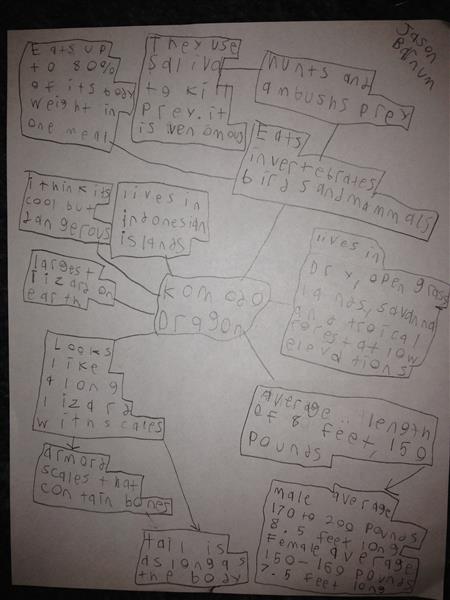 Jason
Barnum
Eats up
to 80%
of its body
weight in
one meal
They use
saliva
to ki
prey. it
is venomous
hunts and
ambushs prey
Eats
invertebrates
birds and mammals
i think its
cool but
dangerous
lives in
indonesian
islands
largest
lizard on
earth
komodo
Dragon
lives in
Dry, open grass
lands, savanna
and troical
forest at low
elevations
Looks
like
a long
lizard
with scales
average length
of 8 feet, 150
pounds
armord
scales that
contain bones
tail is
as long as
the body
male average
170 to 200 pounds
8.5 feet long
Female average
150-160 pounds
7.5 feet long